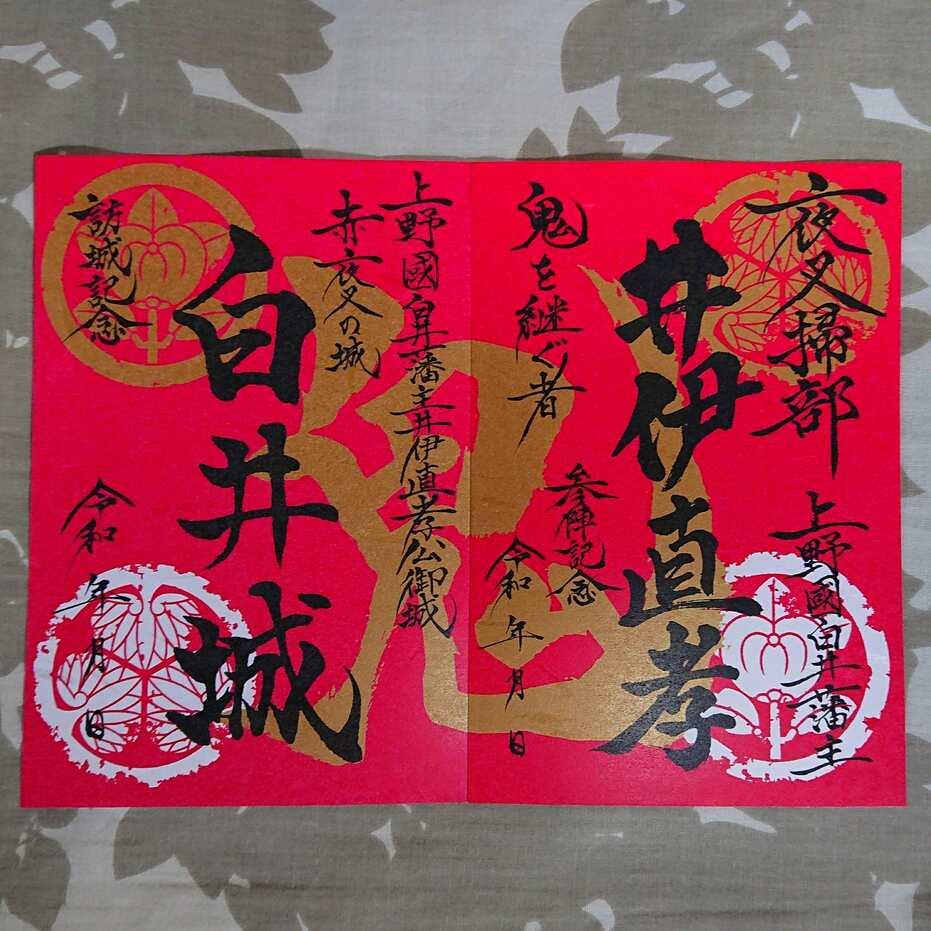 夜叉掃部
上野國白井藩主
井伊直孝
鬼を継ぐ者
参陣記念
令和 年 月 日
上野國白井藩主井伊直孝公御城
赤夜叉の城
白井城
訪城記念
令和 年 月 日